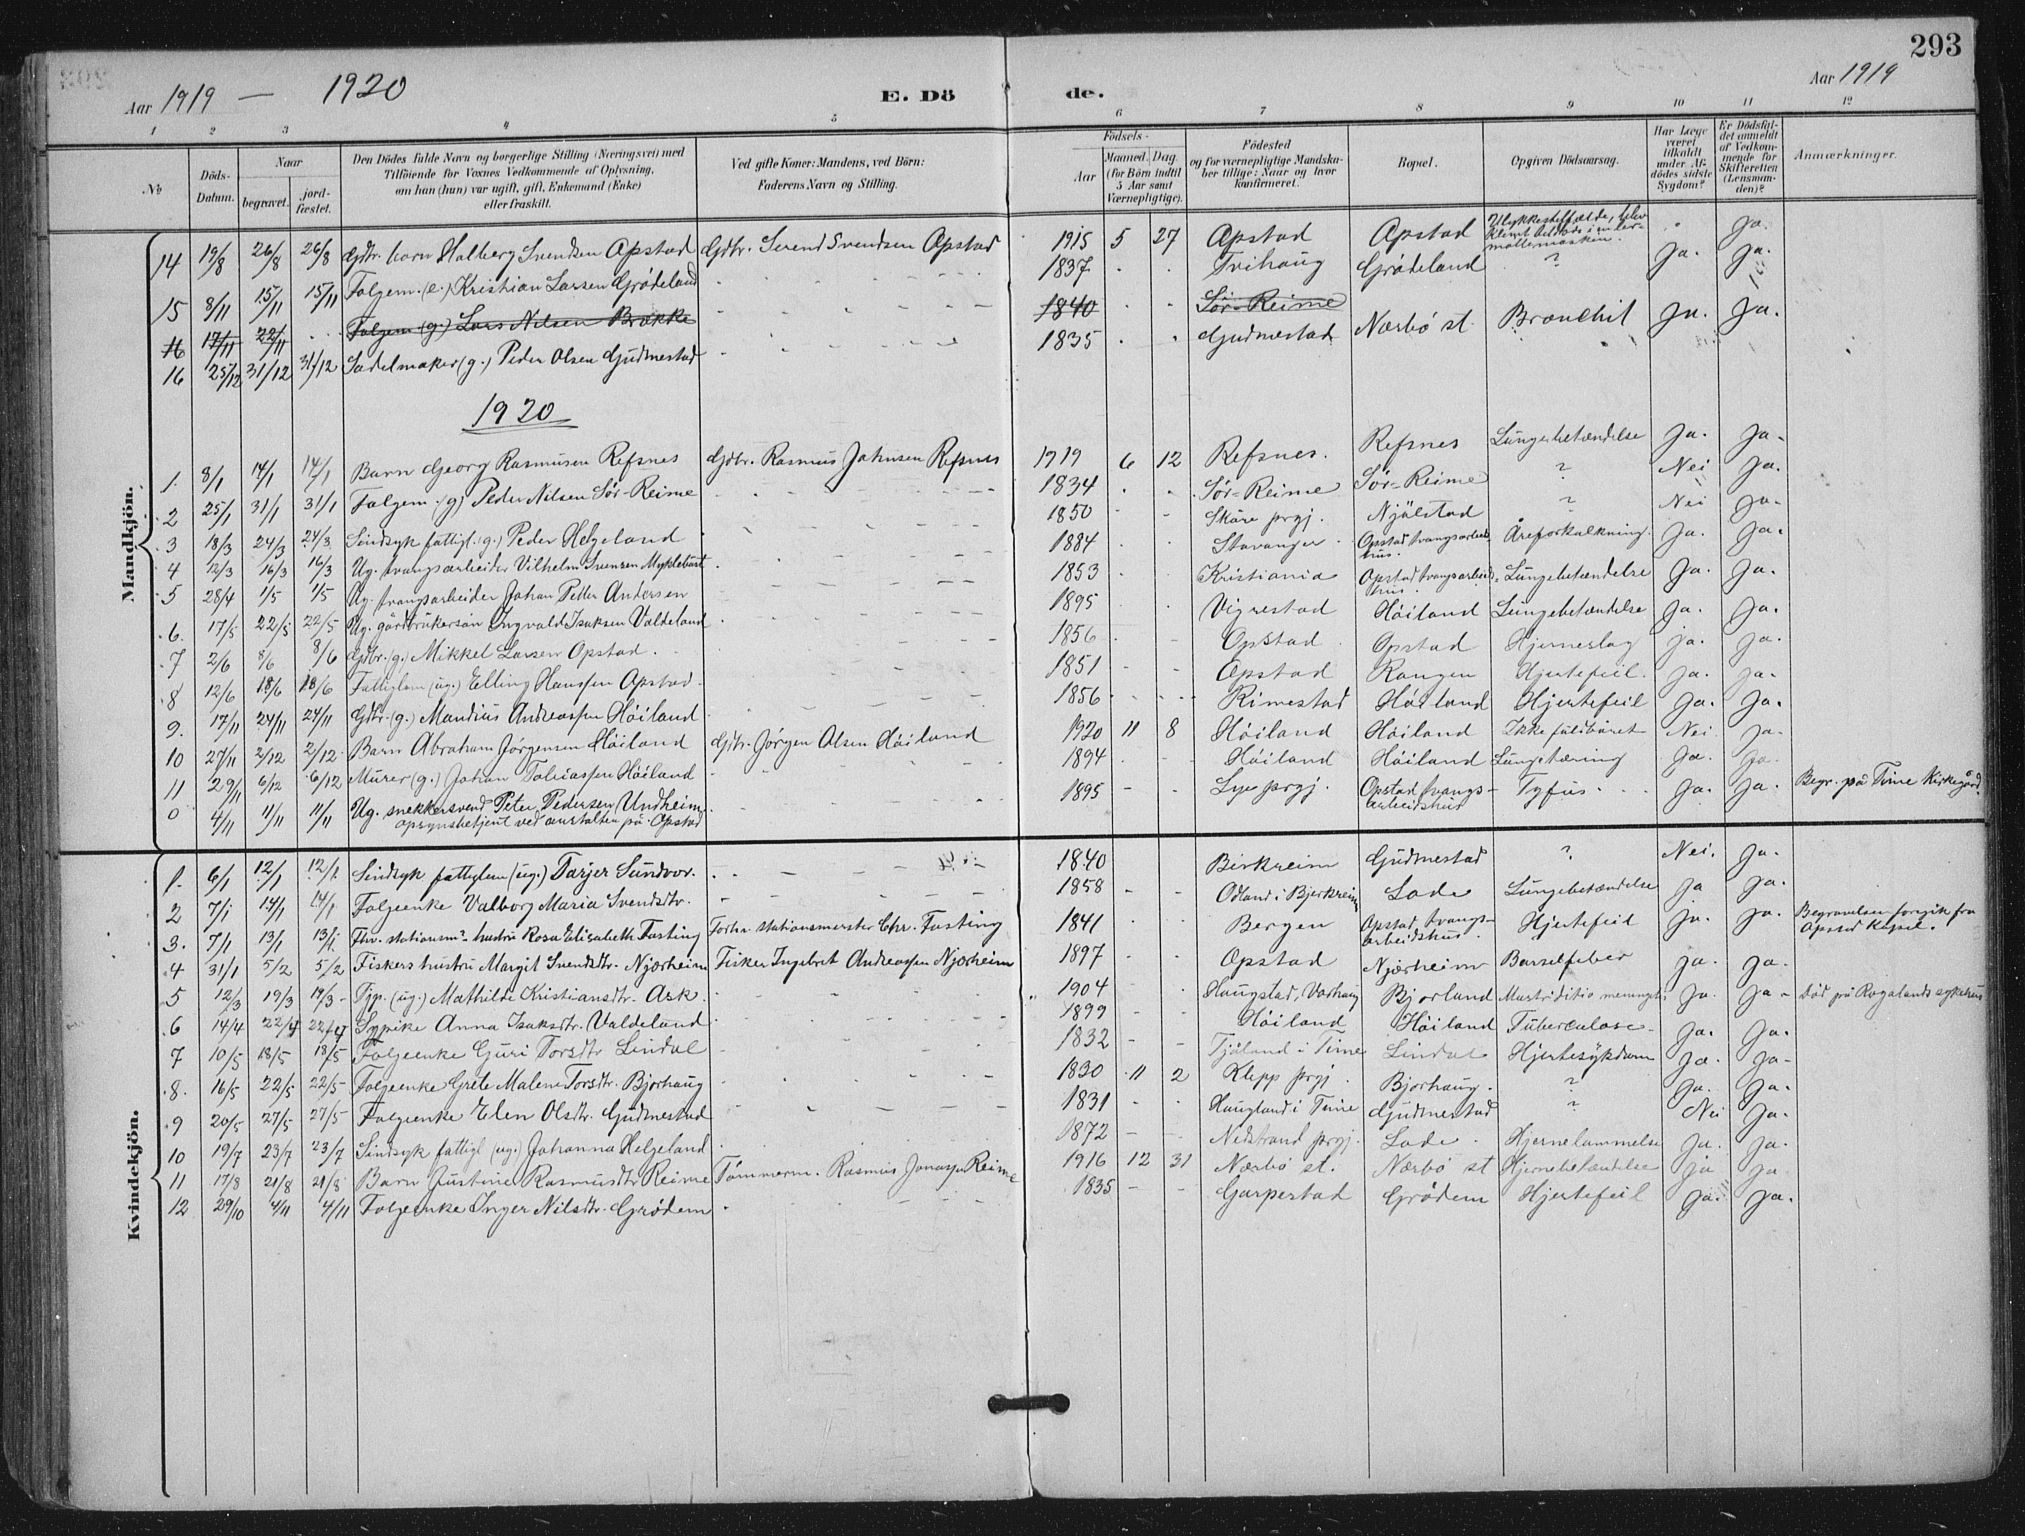 293
Aar 1919 — 1920
E. Dö de.
Aar 1919
1 2 3 4 5 6 7 8 9 10 11 12
No
Döds-Datum.
Naar begravet. jord-fæstet.
Den Dödes fulde Navn og borgerlige Stilling (Næringsvei) med Tilföiende for Voxnes Vedkommende af Oplysning, om han (hun) var ugift, gift, Enkemand (Enke) eller fraskilt.
Ved gifte Koner: Mandens, ved Börn: Faderens Navn og Stilling.
Födsels-
Aar
Maaned. Dag. (for Börn indtil 5 Aar samt Værnepligtige).
Födested og for værnepligtige Mandskaber tillige: Naar og hvor konfirmeret.
Bopæl.
Opgiven Dödsaarsag.
Har Læge været tilkaldt under Afdödes sidste Sygdom?
Er Dödsfaldet anmeldt af Vedkommende for Skifteretten (Lensmanden)?
Anmærkninger.
Mandkjön.
14 19/8 26/8 26/8 Gdbr. barn Halberg Svendsen Opstad Gdbr. Svend Svendsen Opstad 1915 5 27 Opstad Opstad Ulykkestilfælde, blev klemt tildøds i møllemaskin. Ja.
15 8/11 15/11 15/11 Folgem. (e.) Kristian Larsen Grødeland 1837 Tvihaug Grødeland ? Ja. Ja.
16 17/11 22/11 Folgem (g.) Lars Nilsen Brække 1840 Sör-Reime
16 25/12 31/12 31/12 Sadelmaker (g.) Peder Olsen Gudmestad 1835 Gudmestad Nærbö st. Bronchit Ja. Ja.
1920
1. 8/1 14/1 14/1 Barn Georg Rasmusen Refsnes Gdbr. Rasmus Johnsen Refsnes 1919 6 12 Refsnes. Refsnes Lungebetændelse Ja. Ja.
2 25/1 31/1 31/1 Folgem. (g) Peder Nilsen Sör-Reime 1834 Sör-Reime Sör-Reime ? Nei Ja.
3 18/3 24/3 24/3 Sindsyk fattigl. (g.) Peder Helgeland 1850 Skåre prgj. Njålstad ? Nei Ja.
4 12/3 16/3 16/3 Ug. tvangsarbeider Vilhelm Svensen Myklebust 1884 Stavanger Opstad tvangsarbeidshus. Åreforkalkning. Ja. Ja.
5 28/4 1/5 1/5 Ug. tvangsarbeider Johan Petter Andersen 1853 Kristiania Opstad tvangsarbeidshus. Lungebetændelse Ja. Ja.
6. 17/5 22/5 22/5 Ug. gårdbrukersön Ingvald Isaksen Valdeland 1895 Vigrestad Höiland Lungebetændelse Ja. Ja.
7 2/6 8/6 8/6 Gdbr. (g.) Mikkel Larsen Opstad. 1856 Opstad Opstad Hjerneslag ja. Ja.
8 12/6 18/6 18/6 Fattiglem (ug.) Elling Hanssen Opstad. 1851 Opstad Rangen Hjertefeil. Ja. Ja.
9. 17/11 24/11 24/11 Gdbr. (g.) Mandius Andreassen Höiland 1856 Rimestad Höiland Hjertefeil Ja. Ja.
10 27/11 2/12 2/12 Barn Abraham Jörgensen Höiland Gdbr. Jörgen Olsen Höiland 1920 11 8 Höiland Höiland Ikke fuldbåret Nei Ja.
11 29/11 6/12 6/12 Murer (g.) Johan Tobiassen Höiland 1894 Höiland Höiland Lungetæring Ja. Ja.
0 4/11 11/11 11/11 Ug. snekkersvend Peter Pedersen Undheim opsynsbetjent ved anstalten på Opstad 1895 Lye prgj. Opstad tvangsarbeidshus Tyfus Ja. Ja. Begr. på Time Kirkegård.
Kvindekjön.
1. 6/1 12/1 12/1 Sindsyk fattiglem (ug.) Tarjer Sundvor. 1840 Birkreim Gudmestad ? Nei. Ja.
2 7/1 14/1 14/1 Folgeenke Valborg Maria Svendsdtr. 1858 Odland i Bjerkreim Lode Lungebetændelse Ja Ja.
3. 7/1 13/1 13/1 Fhv. stationsm. hustru Rosa Elisabeth Fasting Forhv. stationsmester Chr. Fasting 1841 Bergen Opstad tvangsarbeidshus. Hjertefeil Ja. Ja. Begravelsen foregik fra Opstad Kapel.
4 31/1 5/2 5/2 Fiskers hustru Margit Svendsdtr. Njærheim Fisker Ingebret Andreassen Njærheim 1897 Opstad Njærheim Barselfeber Ja. Ja.
5 12/3 19/3 19/3 Tjp. (ug.) Mathilde Kristiansdtr. Ask. 1904 Haugstad, Varhaug Bjorland Ja. Ja. Död på Rogalands sykehus
6 14/4 22/4 22/4 Sypike Anna Isaksdtr. Valdeland 1899 Höiland Höiland Tuberculose. Ja. Ja.
7 10/5 18/5 18/5 Folgeenke Guri Torsdtr Lindal 1832 Tjåland i Time Lindal Hjertesykdom Ja. Ja.
8. 16/5 22/5 22/5 Folgeenke Grete Malene Torsdtr. Bjorhaug 1830 11 2 Klepp prgj. Bjorhaug. ? Ja. Ja.
9 20/5 27/5 27/5 Folgeenke Elen Olsdtr. Gudmestad 1831 Haugland i Time Gudmestad ? Nei Ja.
10 19/7 23/7 23/7 Sindsyk fattigl (ug.) Johanna Helgeland 1872 Nedstrand prgj. Lode. Hjernelammelse Ja. Ja.
11 17/8 21/8 21/8 Barn Justine Rasmusdtr Reime Tömmerm. Rasmus Jonassen Reime 1916 12 31 Nærbö st. Nærbö st Hjernebetændelse Ja Ja.
12 29/10 4/11 4/11 Folgeenke Inger Nilsdtr. Grödem 1835 Garpestad Grödem Hjertefeil Ja. Ja.